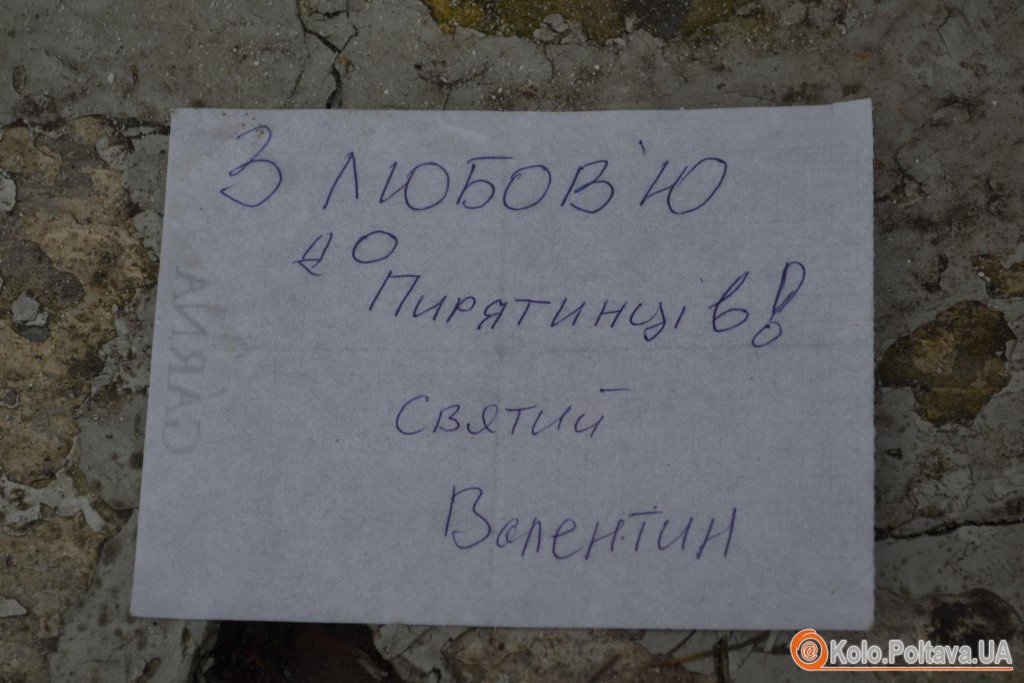 З ЛЮБОВ'Ю
ДО
Пирятинців!
святий
Валентин
GARNA
@Kolo.Poltava.UA